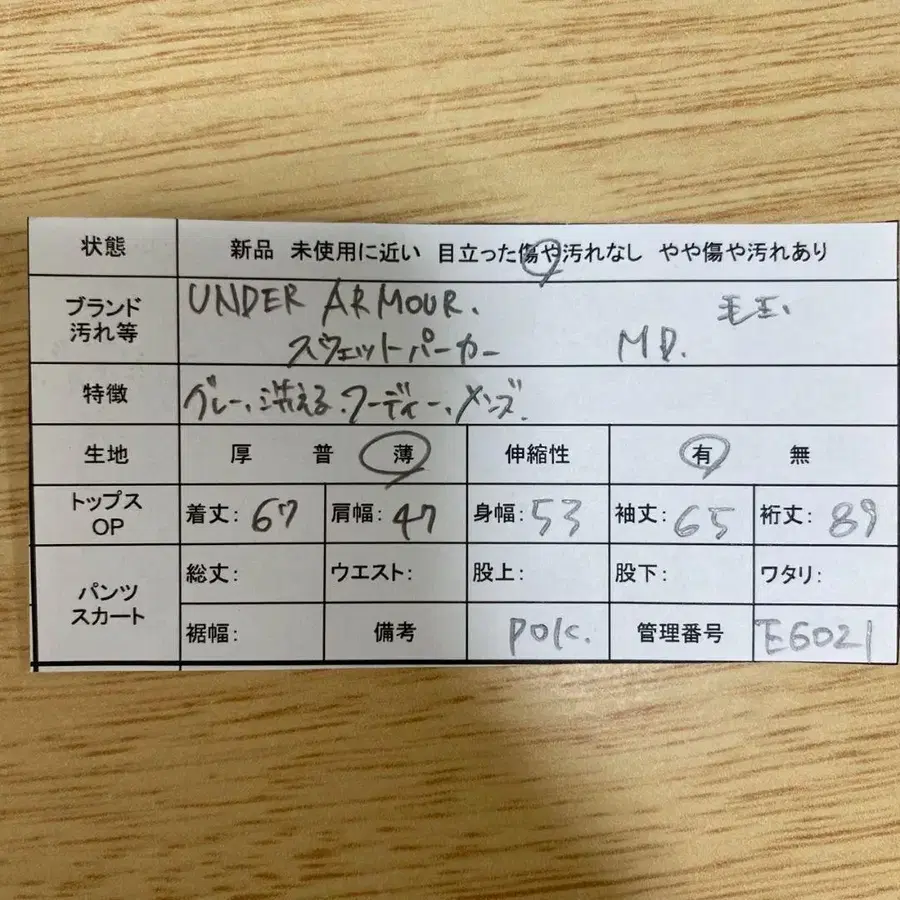 状態 新品 未使用に近い 目立った傷や汚れなし やや傷や汚れあり
ブランド UNDER ARMOUR. 毛玉、
汚れ等 スウェットパーカー MD.
特徴 グレー、洗える、フーディー、メンズ、
生地 厚 普 薄 伸縮性 有 無
トップス
OP 着丈: 67 肩幅: 47 身幅: 53 袖丈: 65 裄丈: 89
パンツ
スカート 総丈: ウエスト: 股上: 股下: ワタリ:
裾幅: 備考 管理番号 E6021